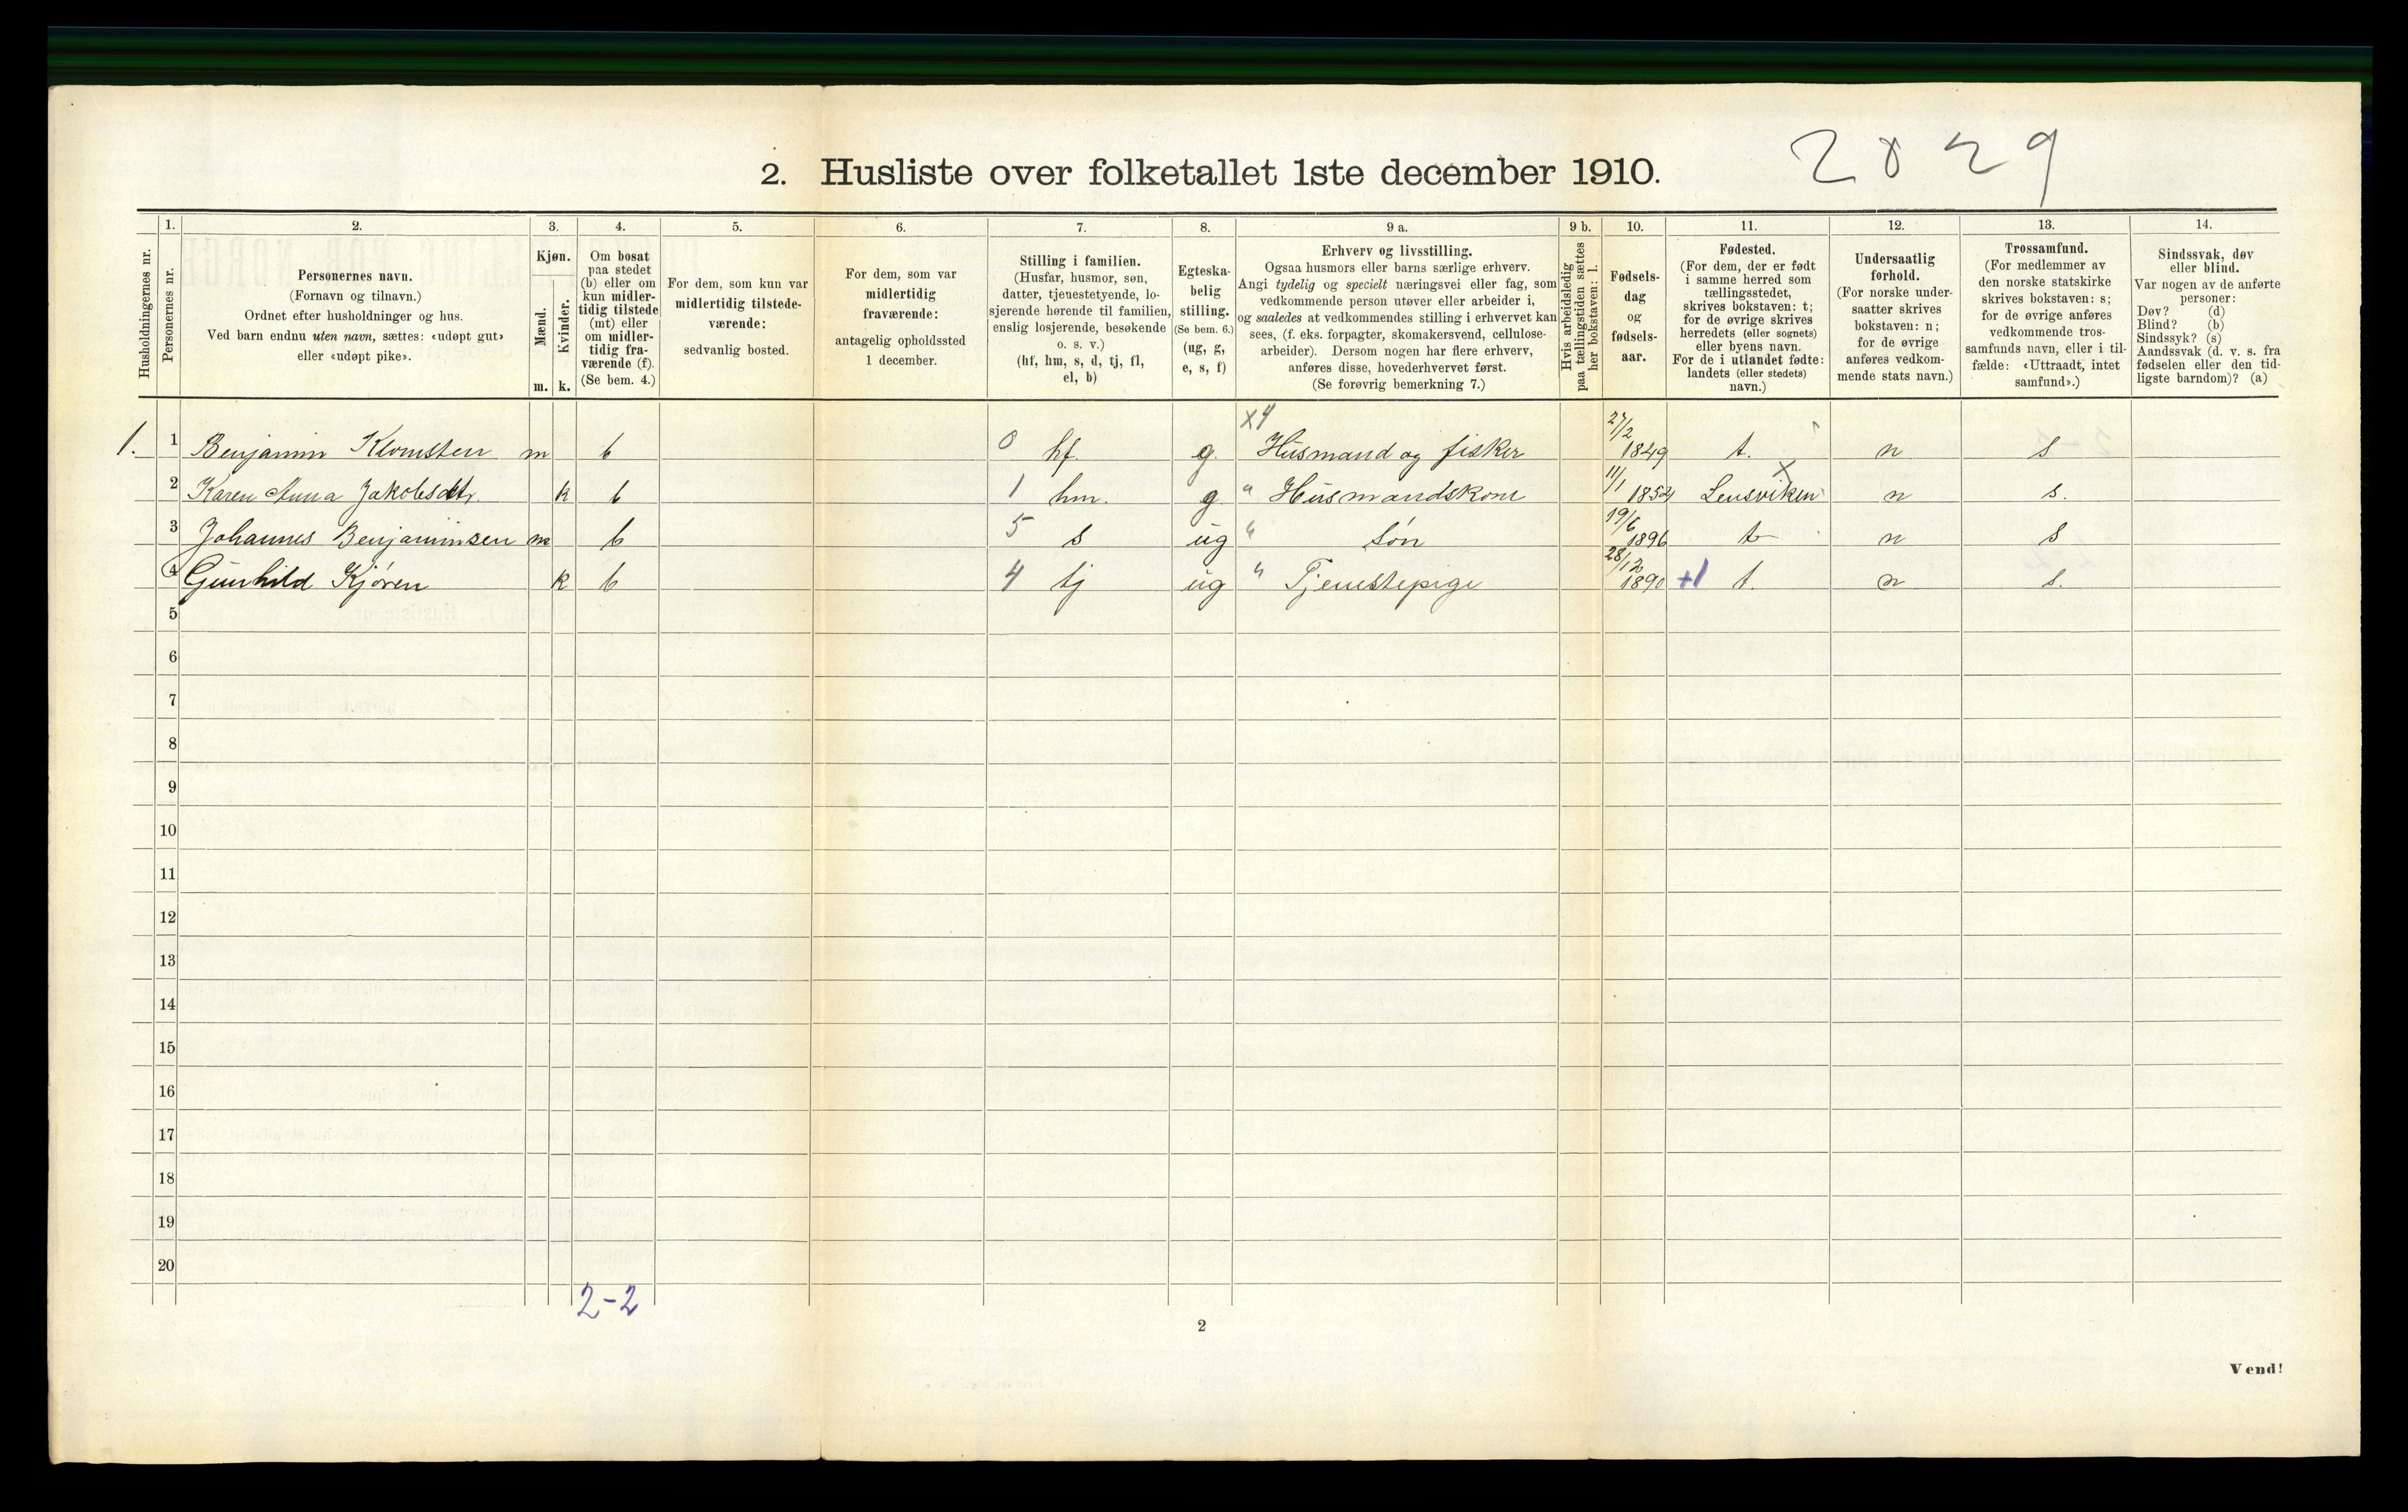 2. Husliste over folketallet 1ste december 1910.
2829
Husholdningernes nr.
1.
Personernes nr.
2.
Personernes navn.
(Fornavn og tilnavn.)
Ordnet efter husholdninger og hus.
Ved barn endnu uten navn, sættes: «udøpt gut»
eller «udøpt pike».
3.
Kjøn.
Mænd.
Kvinder.
m. k.
4.
Om bosat
paa stedet
(b) eller om
kun midler-
tidig tilstede
(mt) eller
om midler-
tidig fra-
værende (f).
(Se bem. 4.)
5.
For dem, som kun var
midlertidig tilstede-
værende:
sedvanlig bosted.
6.
For dem, som var
midlertidig
fraværende:
antagelig opholdssted
1 december.
7.
Stilling i familien.
(Husfar, husmor, søn,
datter, tjenestetyende, lo-
sjerende hørende til familien,
enslig losjerende, besøkende
o. s. v.)
(hf, hm, s, d, tj, fl,
el, b)
8.
Egteska-
belig
stilling.
(Se bem. 6.)
(ug, g,
e, s, f)
9 a.
Erhverv og livsstilling.
Ogsaa husmors eller barns særlige erhverv.
Angi tydelig og specielt næringsvei eller fag, som
vedkommende person utøver eller arbeider i,
og saaledes at vedkommendes stilling i erhvervet kan
sees, (f. eks. forpagter, skomakersvend, cellulose-
arbeider). Dersom nogen har flere erhverv,
anføres disse, hovederhvervet først.
(Se forøvrig bemerkning 7.)
9 b.
Hvis arbeidsledig
paa tællingstiden sættes
her bokstaven: l.
10.
Fødsels-
dag
og
fødsels-
aar.
11.
Fødested.
(For dem, der er født
i samme herred som
tællingsstedet,
skrives bokstaven: t;
for de øvrige skrives
herredets (eller sognets)
eller byens navn.
For de i utlandet fødte:
landets (eller stedets)
navn.)
12.
Undersaatlig
forhold.
(For norske under-
saatter skrives
bokstaven: n;
for de øvrige
anføres vedkom-
mende stats navn.)
13.
Trossamfund.
(For medlemmer av
den norske statskirke
skrives bokstaven: s;
for de øvrige anføres
vedkommende tros-
samfunds navn, eller i til-
fælde: «Uttraadt, intet
samfund».)
14.
Sindssvak, døv
eller blind.
Var nogen av de anførte
personer:
Døv? (d)
Blind? (b)
Sindssyk? (s)
Aandssvak (d. v. s. fra
fødselen eller den tid-
ligste barndom)? (a)
x4
1. 1 Benjamin Klomsten m b 0 hf. g. Husmand og fisker 27/2 1849 t. n s
2 Karen Anna Jakobsdtr. k b 1 hm. g. " Husmandskone 11/1 1854 Lensviken x n s.
3 Johannes Benjaminsen m b 5 s ug " Søn 19/6 1896 t n s
4 Gunhild Kjøren k b 4 tj ug " Tjenestepige 28/12 1890 +1 t. n s.
5
6
7
8
9
10
11
12
13
14
15
16
17
18
19
20
2-2
2
Vend!